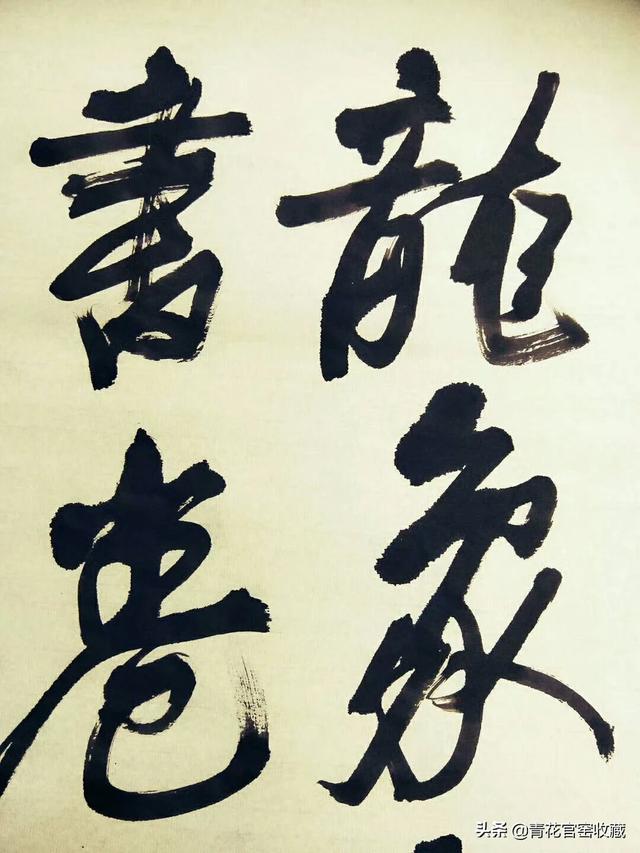 龍象
書卷
头条 @青花官窑收藏